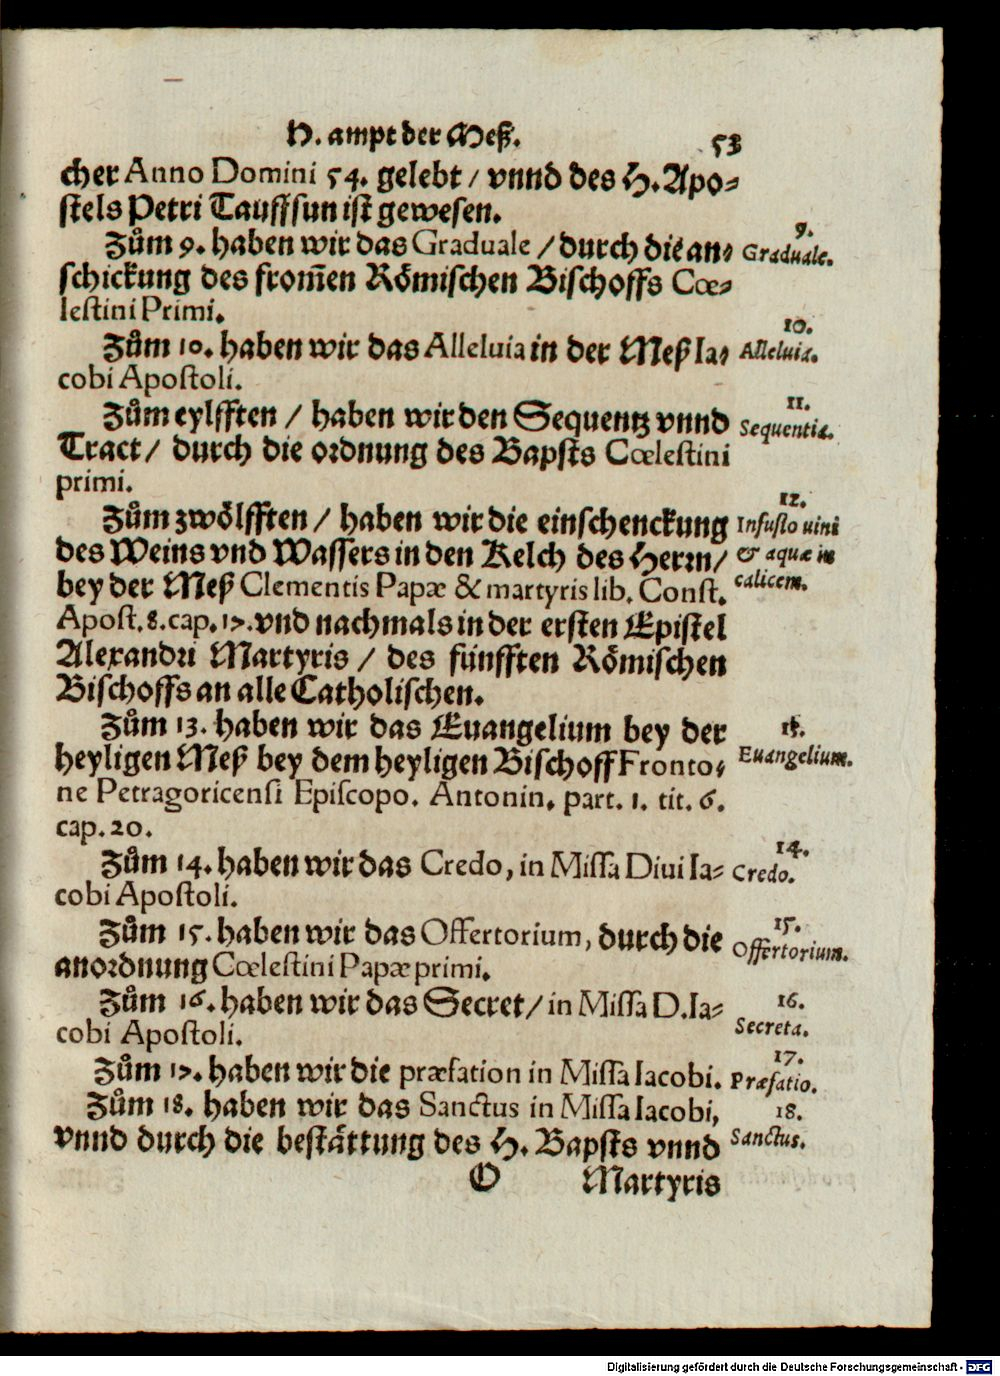 H. ampt der Meß. 53
cher Anno Domini 54. gelebt / vnnd des H. Apo-
stels Petri Tauffsun ist gewesen.
Zům 9. haben wir das Graduale / durch die an-
schickung des from̃en Römischen Bischoffs Cœ-
lestini Primi.
9.
Graduale.
Zům 10. haben wir das Alleluia in der Meß Ia-
cobi Apostoli.
10.
Alleluia.
Zům eylfften / haben wir den Sequentz vnnd
Tract / durch die ordnung des Bapsts Cœlestini
primi.
11.
Sequentia.
Zům zwölfften / haben wir die einschenckung
des Weins vnd Wassers in den Kelch des Herrn /
bey der Meß Clementis Papæ & martyris lib. Const.
Apost. 8. cap. 17. vnd nachmals in der ersten Epistel
Alexandri Martyris / des fünfften Römischen
Bischoffs an alle Catholischen.
12.
Infusio uini
& aquæ in
calicem.
Zům 13. haben wir das Euangelium bey der
heyligen Meß bey dem heyligen Bischoff Fronto-
ne Petragoricensi Episcopo. Antonin. part. 1. tit. 6.
cap. 20.
Euangelium.
Zům 14. haben wir das Credo, in Missa Diui Ia-
cobi Apostoli.
14.
Credo.
Zům 15. haben wir das Offertorium, durch die
anordnung Cœlestini Papæ primi.
15.
Offertorium.
Zům 16. haben wir das Secret / in Missa D. Ia-
cobi Apostoli.
16.
Secreta.
Zům 17. haben wir die præfation in Missa Iacobi.
17.
Præfatio.
Zům 18. haben wir das Sanctus in Missa Iacobi,
vnnd durch die bestättung des H. Bapsts vnnd
18.
Sanctus.
O Martyris
Digitalisierung gefördert durch die Deutsche Forschungsgemeinschaft - DFG